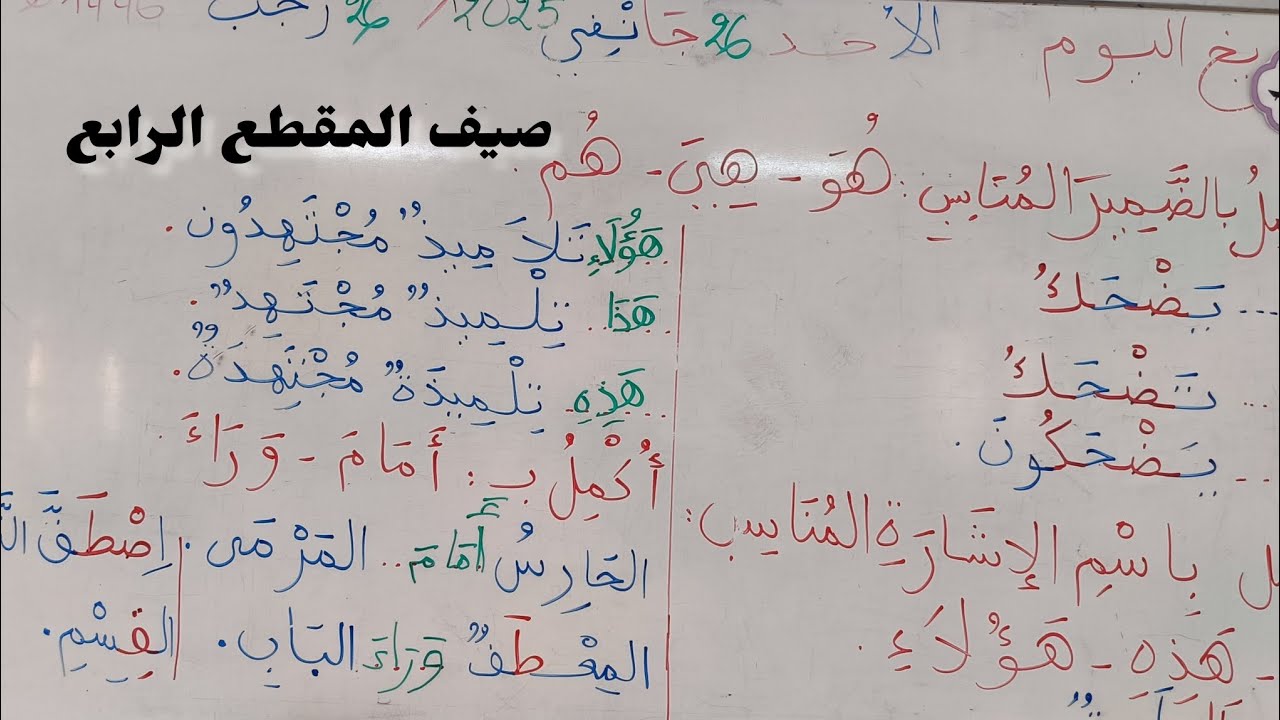 يخ اليوم الأحد 26 جَانْفِي 2025 / 26 رجب 1446
صيف المقطع الرابع
مِلُ بالضَّمِيرَ المُنَاسِبِ : هُوَ - هِيَ - هُم .
... يَضْحَكُ
... تَضْحَكُ
... يَضْحَكُونَ .
ل بِاسْمِ الإِشَارَةِ المُنَاسِب :
- هَذِهِ - هَؤُلَاءِ .
هَؤُلَاءِ تَلاَمِيذٌ مُجْتَهِدُون .
هَذَا .. تِلْمِيذٌ مُجْتَهِدٌ .
هَذِهِ .. تِلْمِيذَةٌ مُجْتَهِدَةٌ .
أُكْمِلُ بِ : أَمَامَ - وَرَاءَ
الحَارِسُ أَمَامَ .. المَرْمَى . اِصْطَفَّ
المِعْطَفٌ وَرَاءَ البَابِ . القِسْمِ .